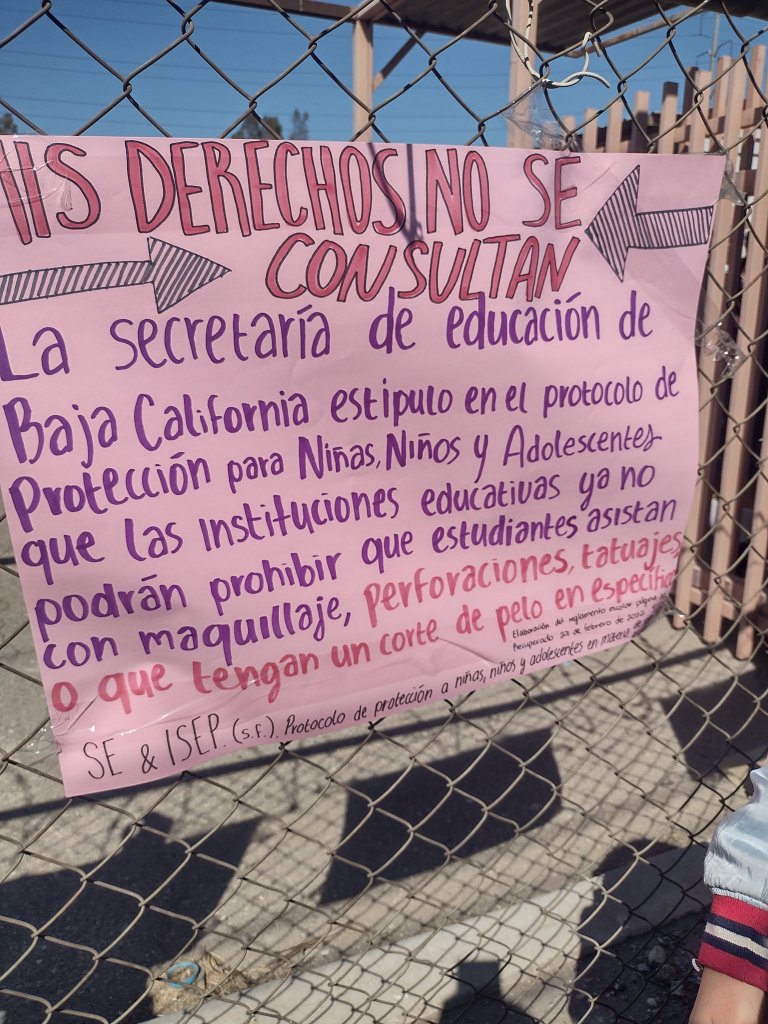 MIS DERECHOS NO SE
CONSULTAN
La secretaría de educación de
Baja California estipulo en el protocolo de
Protección para Niñas, Niños y Adolescentes
que las Instituciones educativas ya no
podrán prohibir que estudiantes asistan
con maquillaje, perforaciones, tatuajes,
o que tengan un corte de pelo en específico
Elaboración del reglamento escolar página
Recuperado 27 de febrero de
SE & ISEP. (s.f.). Protocolo de protección a niñas, niños y adolescentes en materia de